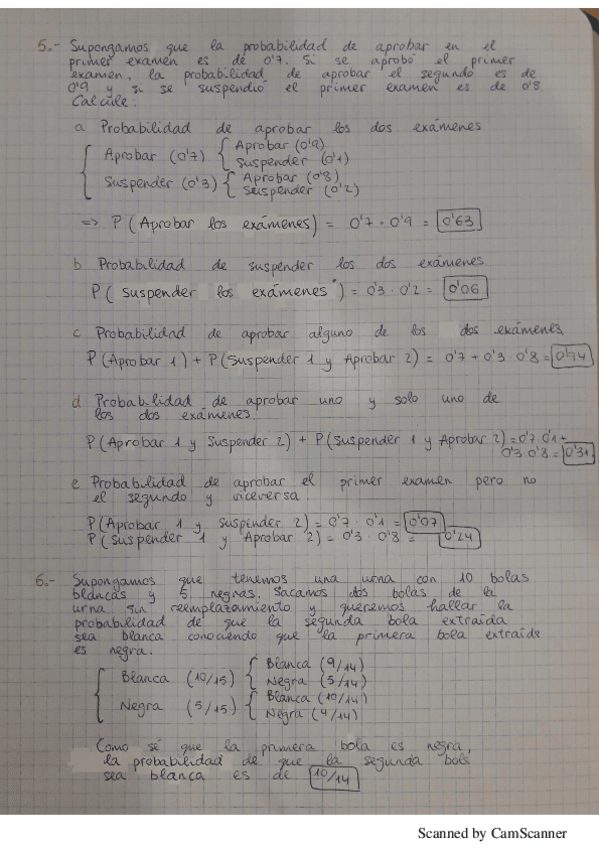 5.- Supongamos que la probabilidad de aprobar en el
primer examen es de 0'7. Si se aprobó el primer
examen, la probabilidad de aprobar el segundo es de
0'9 y si se suspendió el primer examen es de 0'8.
Calcule:
a Probabilidad de aprobar los dos exámenes
Aprobar (0'7) { Aprobar (0'9)
Suspender (0'1)
Suspender (0'3) { Aprobar (0'8)
Suspender (0'2)
=> P (Aprobar los exámenes) = 0'7 · 0'9 = 0'63
b Probabilidad de suspender los dos exámenes
P( suspender los exámenes ) = 0'3 · 0'2 = 0'06
c Probabilidad de aprobar alguno de los dos exámenes
P(Aprobar 1) + P(Suspender 1 y Aprobar 2) = 0'7 + 0'3 · 0'8 = 0'94
d Probabilidad de aprobar uno y solo uno de
los dos exámenes
P(Aprobar 1 y Suspender 2) + P(Suspender 1 y Aprobar 2) = 0'7 · 0'1 +
0'3 · 0'8 = 0'31
e Probabilidad de aprobar el primer examen pero no
el segundo y viceversa
P(Aprobar 1 y Suspender 2) = 0'7 · 0'1 = 0'07
P(Suspender 1 y Aprobar 2) = 0'3 · 0'8 = 0'24
6.- Supongamos que tenemos una urna con 10 bolas
blancas y 5 negras. Sacamos dos bolas de la
urna sin reemplazamiento y queremos hallar la
probabilidad de que la segunda bola extraída
sea blanca conociendo que la primera bola extraída
es negra.
Blanca (10/15) { Blanca (9/14)
Negra (5/14)
Negra (5/15) { Blanca (10/14)
Negra (4/14)
Como sé que la primera bola es negra,
la probabilidad de que la segunda bola
sea blanca es de 10/14
Scanned by CamScanner